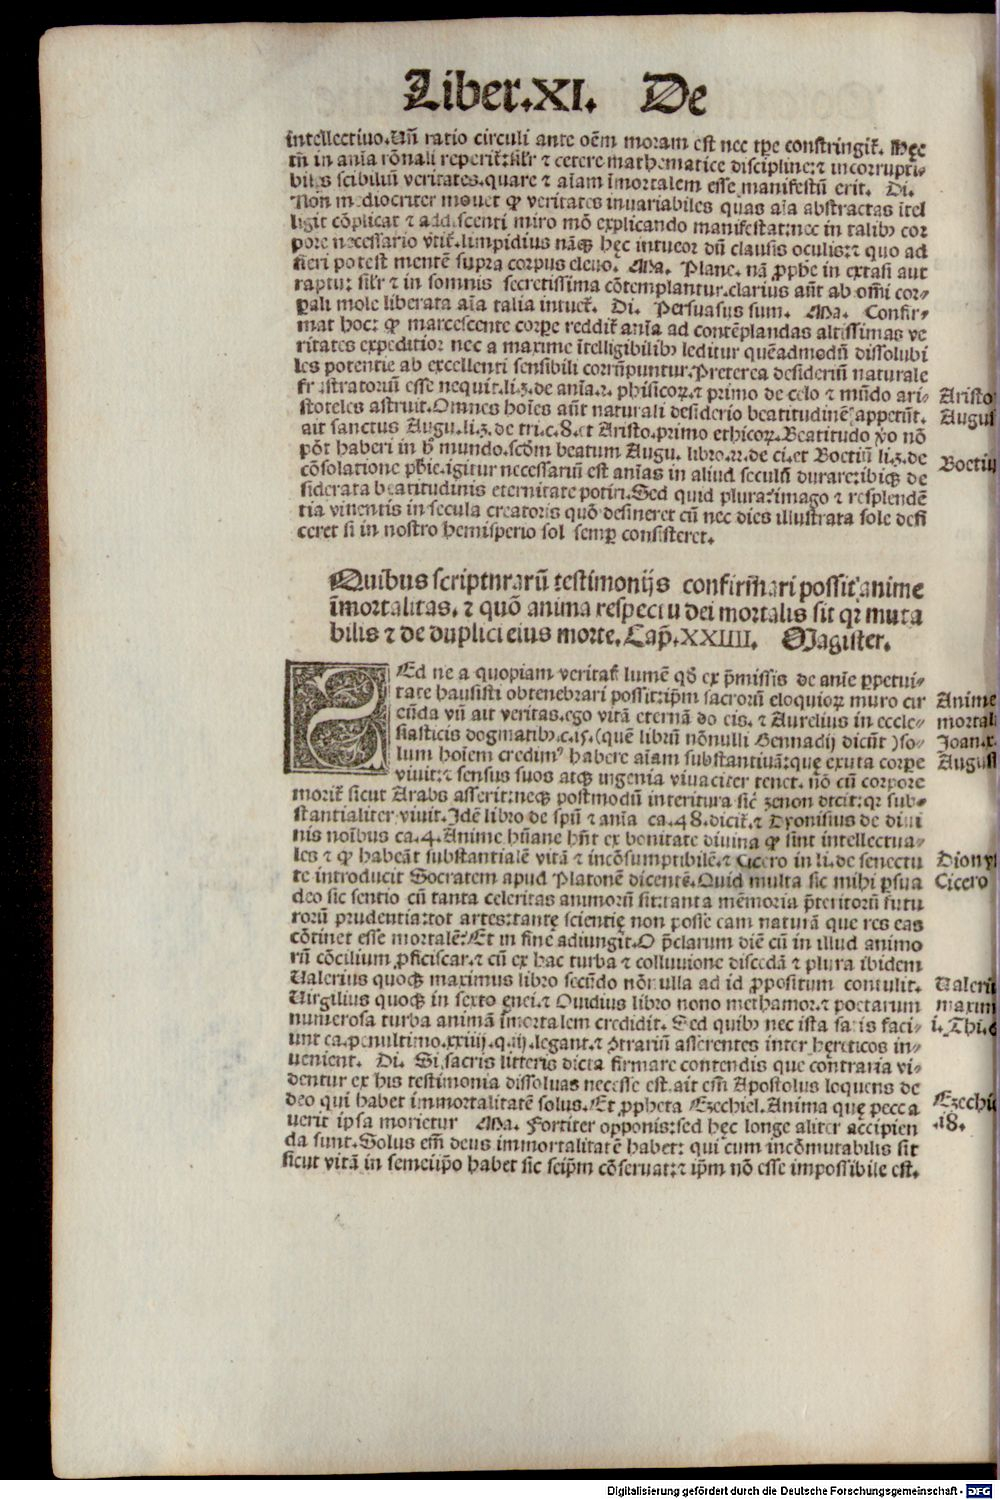 Liber.XI. De
intellectiuo.Uñ ratio circuli ante oẽm moram est nec tꝑe constringit̃. Hęc
tñ in aĩa rõnali reperit̃:sĩlr ⁊ cetere mathematice discipline:⁊ incorrupti⸗
biles scibiliũ veritates.quare ⁊ aĩam ĩmortalem esse manifestũ erit. Di.
Non mediocriter mouet ꝙ veritates inuariabiles quas aĩa abstractas ĩtel
ligit cõplicat ⁊ addiscenti miro mõ explicando manifestat:nec in talibꝰ cor
pore necessario vtit̃.limpidius nãqꝫ hęc intueor dũ clausis oculis:⁊ quo ad
fieri potest mentẽ supra corpus eleuo. Ma. Plane. nã ꝓphe in extasi aut
raptu: sĩlr ⁊ in somnis secretissima cõtemplantur.clarius aũt ab om̃i cor⸗
ꝑali mole liberata aĩa talia intuet̃. Di. Persuasus sum. Ma. Confir⸗
mat hoc: ꝙ marcescente corꝑe reddit̃ aĩa ad contẽplandas altissimas ve
ritates expeditior nec a maxime ĩtelligibilibꝰ leditur quẽadmodũ dissolubi
les potentie ab excellenti sensibili corrũpuntur.Preterea desideriũ naturale
frustratoriũ esse nequit.li.3.de aĩa.2. phisicoꝝ.⁊ primo de celo ⁊ mũdo ari⸗
stoteles astruit.Omnes hoĩes aũt naturali desiderio beatitudinẽ appetũt.
ait sanctus Augu.li.3.de tri.c.8.et Aristo.primo ethicoꝝ.Beatitudo v̊o nõ
põt haberi in hꝰ mundo.scd̃m beatum Augu. libro.22.de ci.et Boetiũ li.3.de
cõsolatione phĩe.igitur necessariũ est aĩas in aliud seculũ durare:ibiqꝫ de
siderata beatitudinis eternitate potiri.Sed quid plura?imago ⁊ resplendẽ
tia viuentis in secula creatoris quõ desineret cũ nec dies illustrata sole defi
ceret si in nostro hemisperio sol semꝑ consisteret.
Aristo
Augus
Boetiu
Quibus scripturarũ testimonijs confirmari possit anime
ĩmortalitas. ⁊ quõ anima respectu dei mortalis sit qr̃ muta
bilis ⁊ de duplici eius morte. Cap̃.XXIIII. Magister.
SEd ne a quopiam veritat̃ lumẽ qd̃ ex p̃missis de aĩe ꝑpetui⸗
tate hausisti obtenebrari possit:ip̃m sacrorũ eloquioꝝ muro cir
cũda vñ ait veritas.ego vitã eternã do eis. ⁊ Aurelius in eccle⸗
siasticis dogmatibꝰ.c.15.(quẽ librũ nõnulli Gennadij dicũt )so⸗
lum hoĩem credimꝰ habere aĩam substantiuã:quę exuta corꝑe
viuit:⁊ sensus suos atqꝫ ingenia viuaciter tenet. nõ cũ corpore
morit̃ sicut Arabs asserit:neqꝫ postmodũ interitura sic̃ zenon dicit:qr̃ sub⸗
stantialiter viuit.Idẽ libro de spũ ⁊ aĩa ca.48.dicit̃.⁊ Dyonisius de diui
nis noĩbus ca.4.Anime hũane hñt ex bonitate diuina ꝙ sint intellectua⸗
les ⁊ ꝙ habeãt substantialẽ vitã ⁊ incõsumptibilẽ.⁊ Cicero in li.de senectu
te introducit Socratem apud Platonẽ dicentẽ.Quid multa sic mihi ꝑsua
deo sic sentio cũ tanta celeritas animorũ sit:tanta mẽmoria p̃teritorũ futu
rorũ prudentia:tot artes:tantę scientię non posse eam naturã que res eas
cõtinet esse mortalẽ:Et in fine adiungit.O p̃clarum diẽ cũ in illud animo
rũ cõcilium ꝓficiscar.⁊ cũ ex hac turba ⁊ colluuione discedã ⁊ plura ibidem
Ualerius quoqꝫ maximus libro secũdo nõnulla ad id ꝓpositum contulit.
Uirgilius quoqꝫ in sexto ęnei.⁊ Ouidius libro nono methamor.⁊ poetarum
numerosa turba animã ĩmortalem credidit. Sed quibꝰ nec ista satis faci⸗
unt ca.penultimo.xxiiij.q.iij.legant.⁊ ꝯtrariũ asserentes inter hęreticos in⸗
uenient. Di. Si sacris litteris dicta firmare contendis que contraria vi⸗
dentur ex his testimonia dissoluas necesse est.ait em̃ Apostolus loquens de
deo qui habet immortalitatẽ solus.Et ꝓpheta Ezechiel.Anima quę pecca
uerit ipsa morietur Ma. Fortiter opponis:sed hęc longe aliter accipien
da sunt.Solus em̃ deus immortalitatẽ habet: qui cum incõmutabilis sit
sicut vitã in semetip̃o habet sic seip̃m cõseruat:⁊ ip̃m nõ esse impossibile est.
Anime
mortali
Joan.x.
August
Dionys
Cicero
Ualeri
maxim
i.Thi.6
Ezechi
.18.
Digitalisierung gefördert durch die Deutsche Forschungsgemeinschaft - DFG